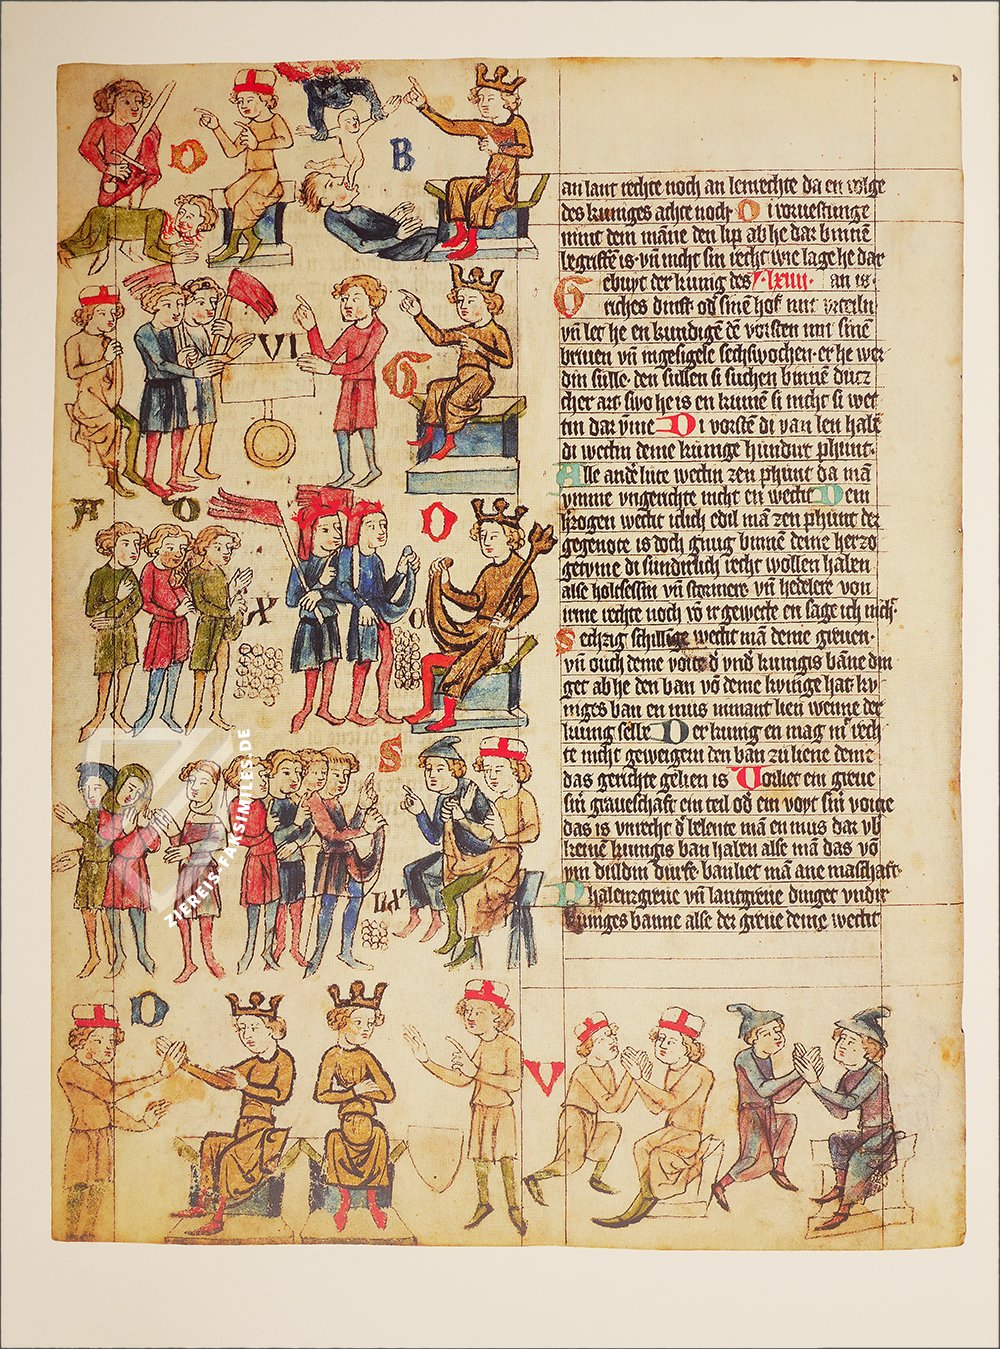 an lant rechte noch an lenrechte da en vulge
des kuniges achte noch Di voruestunge
nimt dem māne den lip ab he dar binnē
begriffē is vn̄ nicht sin recht wie lage he dar
Gebutt der kunig des lxiiii an is
riches dinst od sinē hof mit vrteiln
vn̄ let he en kundigē dē vorsten mit sinē
briuen vn̄ ingesigele sechswochen er he wer
din sulle den sullen si suchen binnē dutz
cher art swo he is en kumē si nicht si wet
tin dar v̄me Di vorstē di van len habē
di wettin deme kunige hundirt phunt
Alle andē lute wettin zen phunt da mā
vmme vngerichte nicht en wettt Dem
hzogen wettt iclich edil mā zen phunt der
gegenote is doch gnug binnē deme herzo
getvme di sundirlich recht wollen haben
alse holtseszin vn̄ stormere vn̄ hedelere von
irme rechte noch vō ir gewette en sage ich nicht
Sechzig schillīge wettt mā deme greuen
vn̄ ouch deme voite d̄ vnd̄ kunigis bāne din
get ab he den ban vō deme kvnīge hat kv
niges ban en mus nimant lien wenne der
kunig selbe Der kunig en mag mit rech
te nicht geweigern den ban zu liene deme
das gerichte gelien is Vorliet ein greue
sin graueschaft ein teil od̄ ein voyt sin voitie
das is vnrecht d̄ belente mā en mus dar vb
keinē kunigis ban haben alse mā das vō
vm dulden durfe banliet mā ane manschaft
Phalenzgreue vn̄ lantgreue dinget vndir
kuniges banne alse der greue deme wettt
D
B
VI
G
A
D
D
X
S
LX
D
V
ZIEREIS-FAKSIMILES.DE